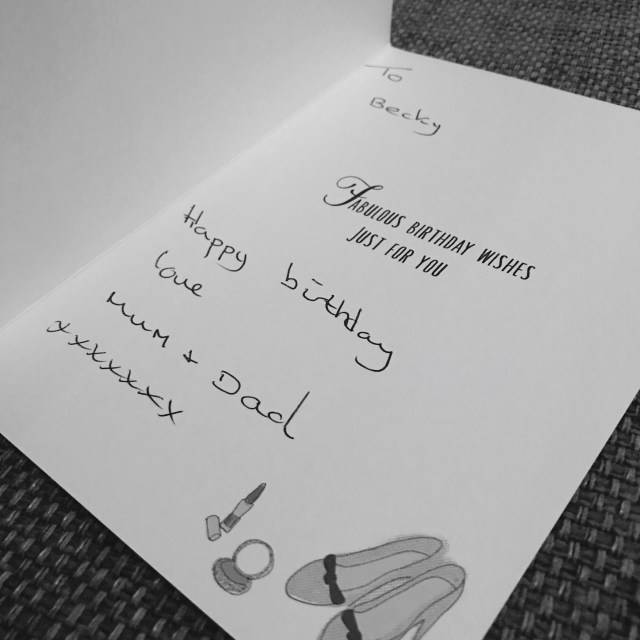 To
Becky
FABULOUS BIRTHDAY WISHES
JUST FOR YOU
Happy birthday
love
Mum + Dad
xxxxxxx